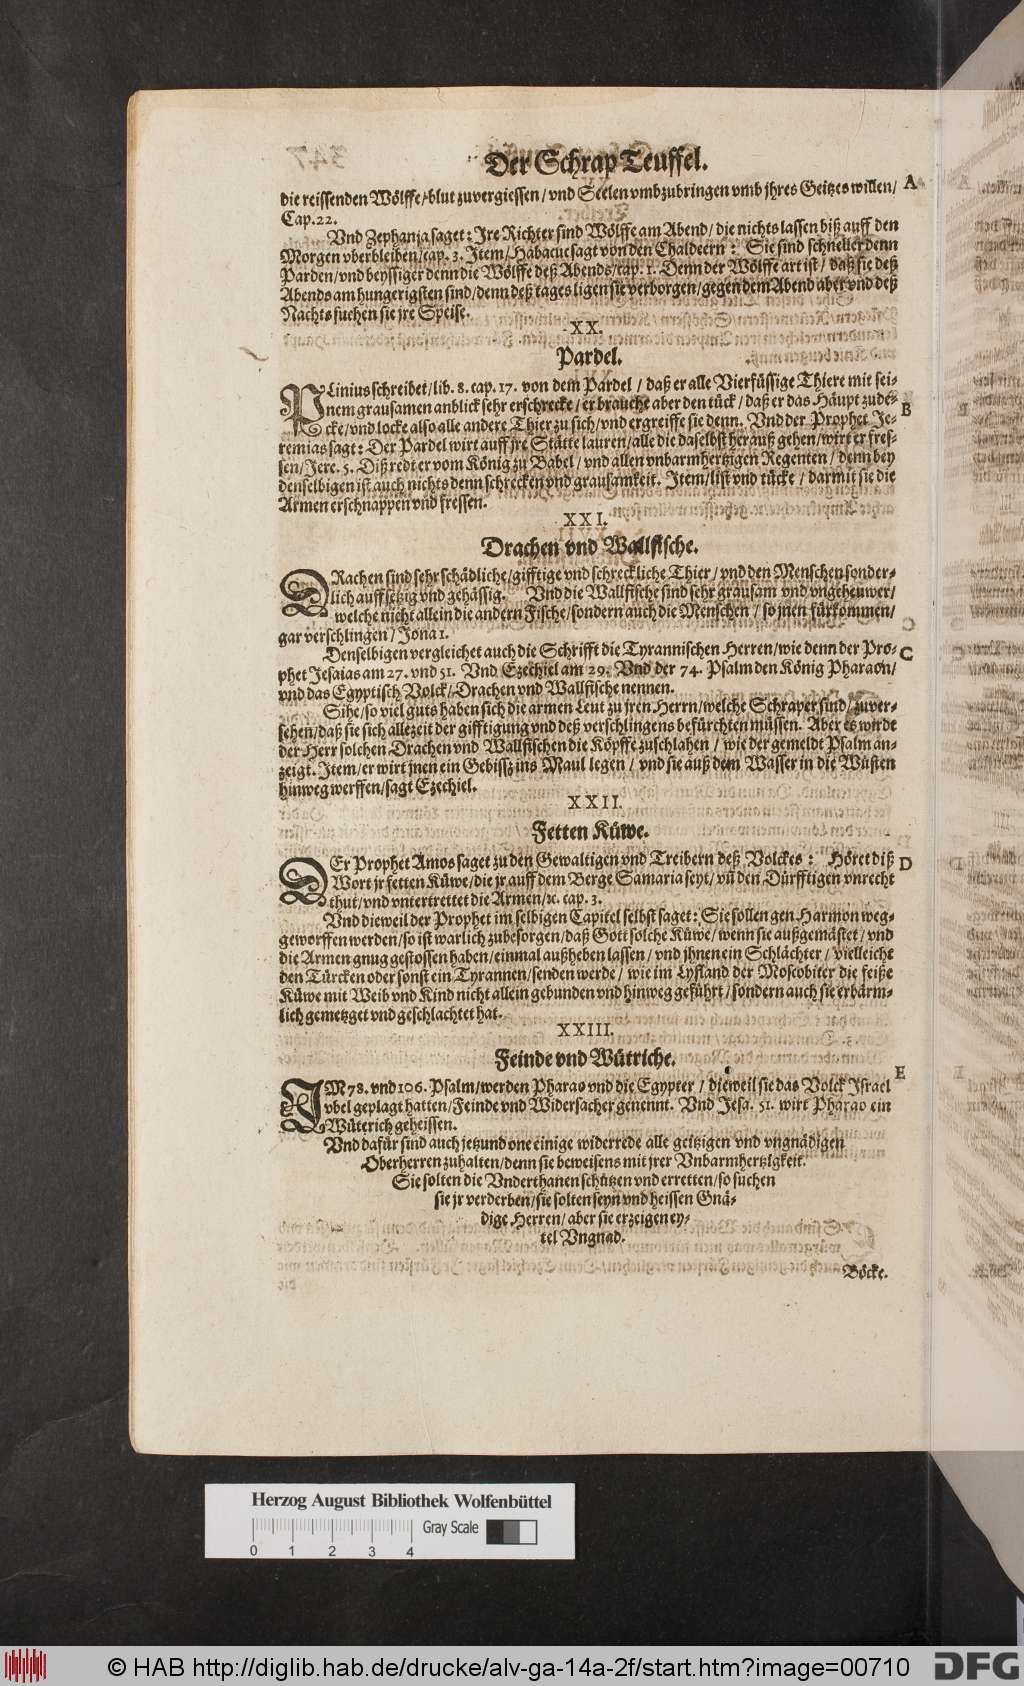 Der Schrap Teuffel.
die reissenden Wölffe/blut zuvergiessen/vnd Seelen vmbzubringen vmb jhres Geitzes willen/ A
Cap. 22.
Vnd Zephanja saget: Jre Richter sind Wölffe am Abend/die nichts lassen biß auff den
Morgen vberbleiben/cap. 3. Jtem/Habacuc sagt von den Chaldeern: Sie sind schneller denn
Parden/vnd beyssiger denn die Wölffe deß Abends/cap. 1. Denn der Wölffe art ist/daß sie deß
Abends am hungerigsten sind/denn deß tages ligen sie verborgen/gegen dem Abend aber vnd deß
Nachts suchen sie jre Speise.
XX.
Pardel.
PLinius schreibet/lib. 8. cap. 17. von dem Pardel/daß er alle Vierfüssige Thiere mit sei-
nem grausamen anblick sehr erschrecke/er brauche aber den tück/daß er das Häupt zude- B
cke/vnd locke also alle andere Thier zu sich/vnd ergreiffe sie denn. Vnd der Prophet Je-
remias sagt: Der Pardel wirt auff jre Stätte lauren/alle die daselbst herauß gehen/wirt er fres-
sen/Jere. 5. Diß redt er vom König zu Babel/vnd allen vnbarmhertzigen Regenten/denn bey
denselbigen ist auch nichts denn schrecken vnd grausamkeit. Jtem/list vnd tücke/darmit sie die
Armen erschnappen vnd fressen.
XXI.
Drachen vnd Wallfische.
DRachen sind sehr schädliche/gifftige vnd schreckliche Thier/vnd den Menschen sonder-
lich auffsetzig vnd gehässig. Vnd die Wallfische sind sehr grausam vnd vngeheuwer/
welche nicht allein die andern Fische/sondern auch die Menschen/so jnen fürkommen/
gar verschlingen/Jona 1.
Denselbigen vergleichet auch die Schrifft die Tyrannischen Herren/wie denn der Pro- C
phet Jesaias am 27. vnd 51. Vnd Ezechiel am 29. Vnd der 74. Psalm den König Pharaon/
vnd das Egyptisch Volck/Drachen vnd Wallfische nennen.
Sihe/so viel guts haben sich die armen Leut zu jren Herrn/welche Schraper sind/zuver-
sehen/daß sie sich allezeit der gifftigung vnd deß verschlingens befürchten müssen. Aber es wirdt
der Herr solchen Drachen vnd Wallfischen die Köpffe zuschlahen/wie der gemeldt Psalm an-
zeigt. Jtem/er wirt jnen ein Gebissz ins Maul legen/vnd sie auß dem Wasser in die Wüsten
hinweg werffen/sagt Ezechiel.
XXII.
Fetten Küwe.
DEr Prophet Amos saget zu den Gewaltigen vnd Treibern deß Volckes: Höret diß D
Wort jr fetten Küwe/die jr auff dem Berge Samaria seyt/vñ den Dürfftigen vnrecht
thut/vnd vntertrettet die Armen/ꝛc. cap. 3.
Vnd dieweil der Prophet im selbigen Capitel selbst saget: Sie sollen gen Harmon weg-
geworffen werden/so ist warlich zubesorgen/daß Gott solche Küwe/wenn sie außgemästet/vnd
die Armen gnug gestossen haben/einmal außheben lassen/vnd jhnen ein Schlächter/vielleicht
den Türcken oder sonst ein Tyrannen/senden werde/wie im Lyfland der Moscobiter die feiße
Küwe mit Weib vnd Kind nicht allein gebunden vnd hinweg geführt/sondern auch sie erbärm-
lich gemetzget vnd geschlachtet hat.
XXIII.
Feinde vnd Wütriche.
E
JM 78. vnd 106. Psalm/werden Pharao vnd die Egypter/dieweil sie das Volck Jsrael
vbel geplagt hatten/Feinde vnd Widersacher genennt. Vnd Jesa. 51. wirt Pharao ein
Wüterich geheissen.
Vnd dafür sind auch jetzund one einige widerrede alle geitzigen vnd vngnädigen
Oberherren zuhalten/denn sie beweisens mit jrer Vnbarmhertzigkeit.
Sie solten die Vnderthanen schützen vnd erretten/so suchen
sie jr verderben/sie solten seyn vnd heissen Gnä-
dige Herren/aber sie erzeigen ey-
tel Vngnad.
Böcke.
Herzog August Bibliothek Wolfenbüttel
Gray Scale
0 1 2 3 4
© HAB http://diglib.hab.de/drucke/alv-ga-14a-2f/start.htm?image=00710 DFG